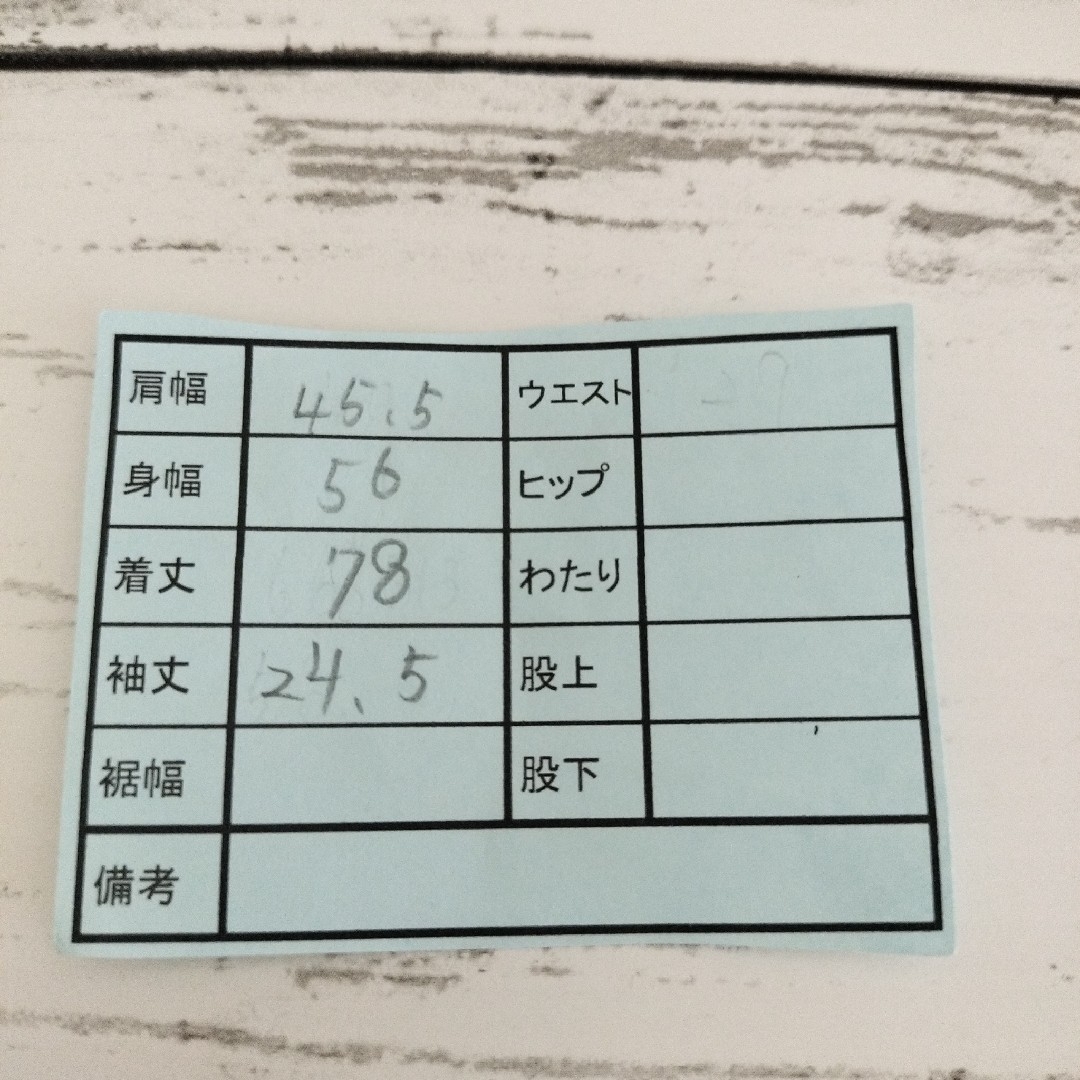 肩幅 45.5 ウエスト
身幅 56 ヒップ
着丈 78 わたり
袖丈 24.5 股上
裾幅 股下
備考